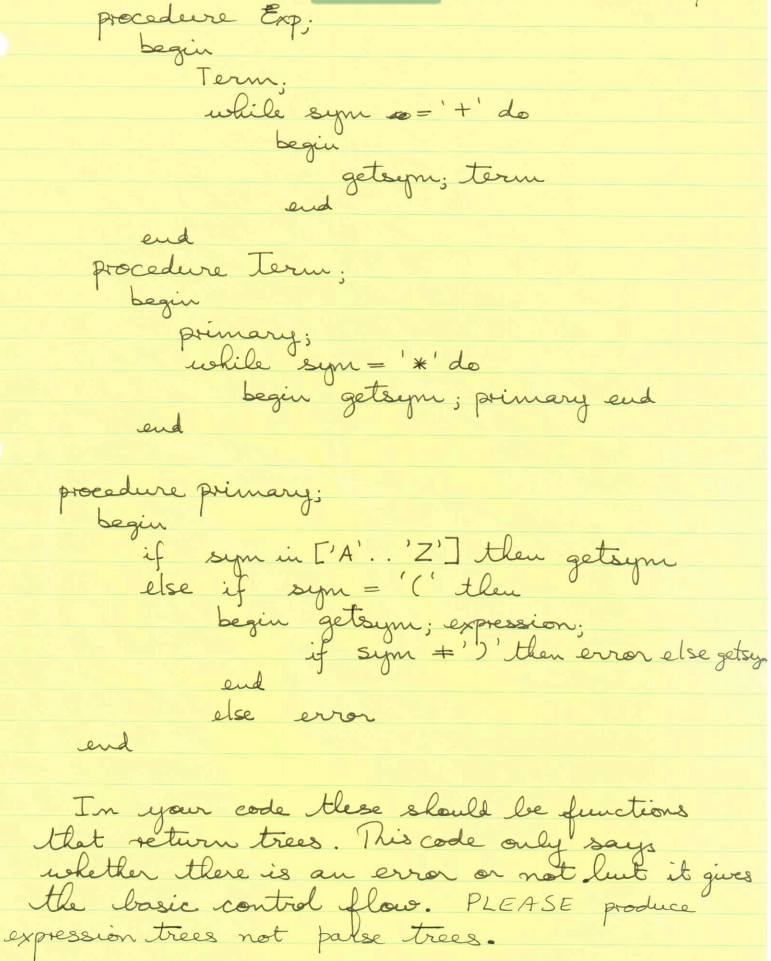 procedure Exp;
begin
Term;
while sym = '+' do
begin
getsym; term
end
end
procedure Term;
begin
primary;
while sym = '*' do
begin getsym; primary end
end
procedure primary;
begin
if sym in ['A'..'Z'] then getsym
else if sym = '(' then
begin getsym; expression;
if sym ≠ ')' then error else getsym
end
else error
end
In your code these should be functions
that return trees. This code only says
whether there is an error or not but it gives
the basic control flow. PLEASE produce
expression trees not parse trees.